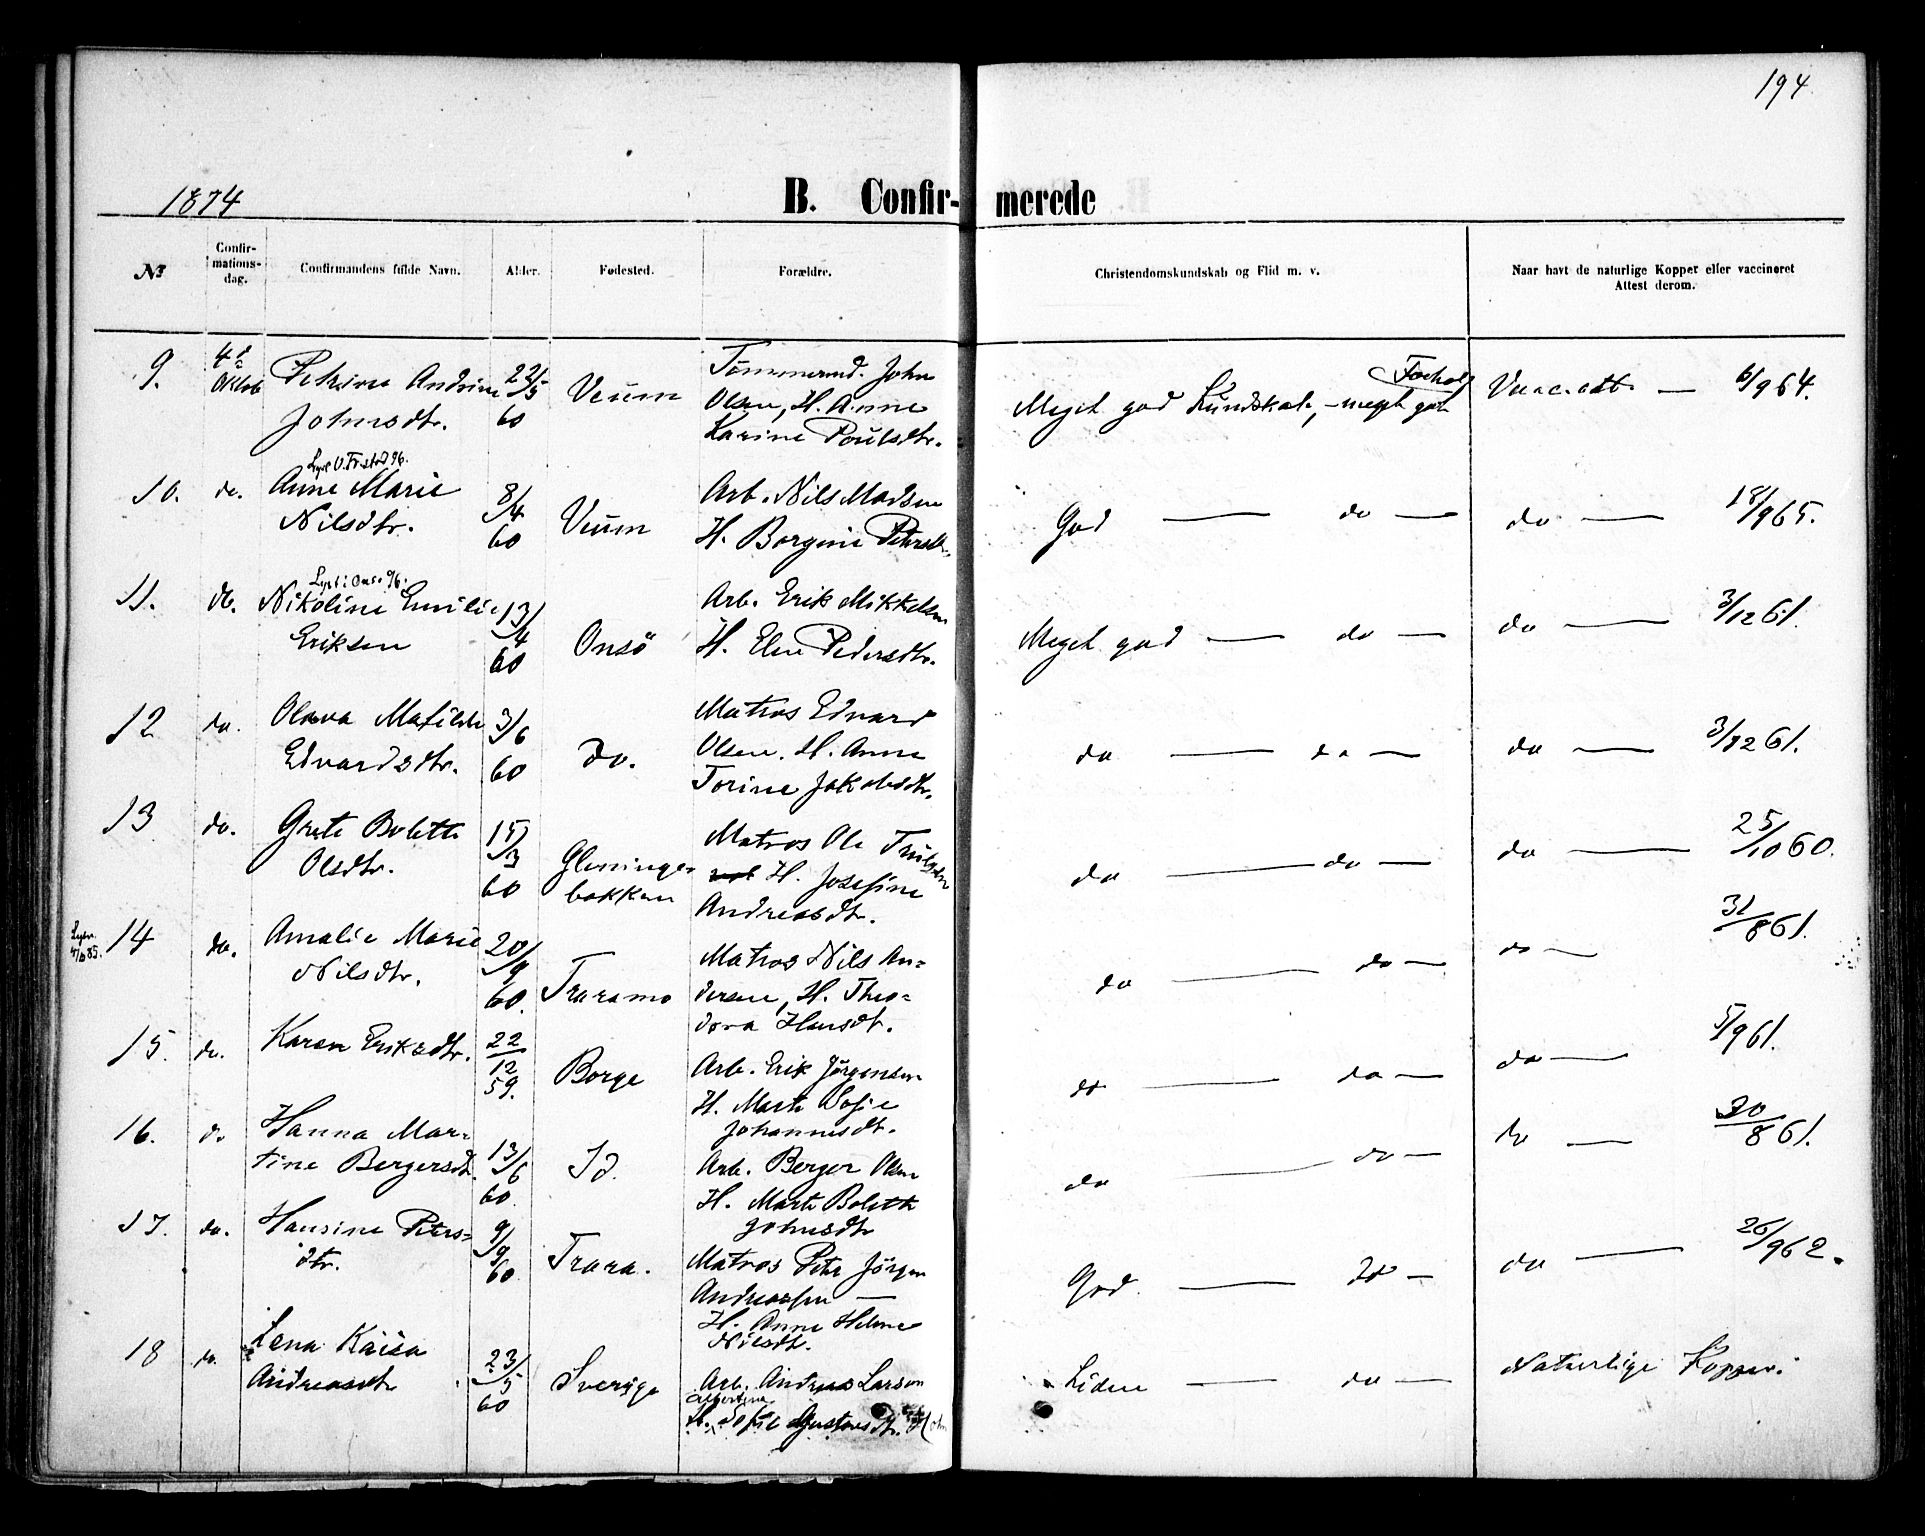 194
1874
B. Confir- merede
№
Confir-
mations-
dag.
Confirmandens fulde Navn.
Alder.
Fødested.
Forældre.
Christendomskundskab og Flid m. v.
Naar havt de naturlige Kopper eller vaccineret
Attest derom.
9. 4d Oktob Petrine Andrine 22/5 60 Veum Tømmermd. John
Johnsdtr. Olsen, H. Anne
Karine Poulsdtr.
Meget god Kundskab, - meget godt Forhold Vacc. att. — 6/9 64.
Lyst 96.
10. do. Anne Marie 8/4 60 Veum Arb. Nils Madsen
Nilsdtr. H. Borgine Petersdtr.
God — do — do — 18/9 65.
Lyst i Onsø 96.
11. do. Nikoline Emilie 13/4 60 Onsö Arb. Erik Mikkelsen
Eriksen H. Elen Pedersdtr.
Meget god — do — do — 3/12 61.
12 do. Olava Matilde 3/6 60 Do. Matros Edvard
Edvardsdtr. Olsen. H. Anne
Torine Jakobsdtr.
do — do — do — 3/12 61.
13 do. Grete Bolette 15/3 60 Gleninge- Matros Ole Trulsen
Olsdtr. bakken H. Josefine
Andreasdtr.
do — do — do — 25/10 60.
85.
14 do. Amalie Marie 20/9 60. Traramo Matros Nils An-
Nilsdtr. dersen, H. Theo-
dora Hansdt.
do — do — do — 31/8 61.
15. do. Karen Eriksdtr. 22/12 59. Borge Arb. Erik Jørgensen
H. Marte Sofie
Johannesdt.
do — do — do — 5/9 61.
16. do Hanna Mar- 13/6 60 Id. Arb. Berger Olsen
tine Bergersdt. H. Marte Boleth
Johnsdtr
do — do — do — 30/8 61.
17. do. Hansine Peters- 9/9 60 Trara. Matros Peter Jörgen
dtr. Andreassen —
H. Anne Helene
Nilsdt.
God. — do — do — 26/9 62.
18 do. Lena Kaisa 23/5 60 Sverige Arb. Andreas Larson
Andreasdtr Albertina
H. Sofie Gustavsdtr.
Liden — do — Naturlige Kopper.